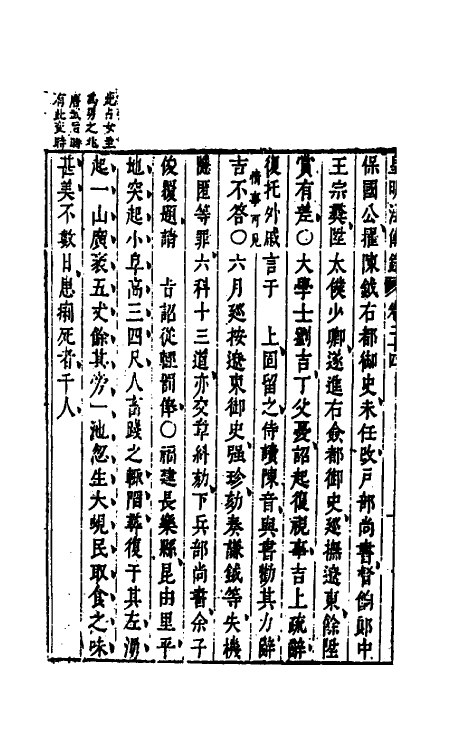 保國公擢陳鉞右都御史未任改戶部尚書督餉郎中
王宗彝陞太僕少卿遂進右僉都御史巡撫遼東餘陞
賞有差○大學士劉吉丁父憂詔起復視事吉上疏辭
情事可見
復托外戚言于　上固留之侍讀陳音與書勸其力辭
吉不答○六月巡按遼東御史强珍劾奏謙鉞等失機
隱匿等罪六科十三道亦交章糾劾下兵部尚書余子
俊覆題請　旨詔從輕罰俸○福建長樂縣昆由里平
此占女主
為男之兆
唐武后時
有此
地突起小阜高三四尺人畜踐之輒陷尋復于其左湧
起一山廣袤五丈餘其旁一池忽生大蜆民取食之味
甚美不數日患痢死者千人